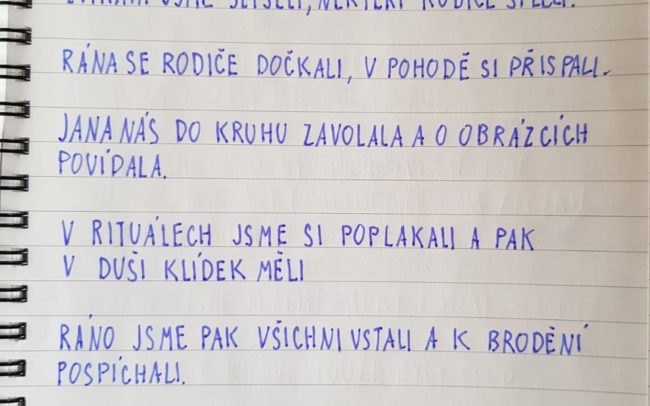 RÁNA SE RODIČE DOČKALI, V POHODĚ SI PŘISPALI.
JANA NÁS DO KRUHU ZAVOLALA A O OBRÁZCÍCH
POVÍDALA.
V RITUÁLECH JSME SI POPLAKALI A PAK
V DUŠI KLÍDEK MĚLI
RÁNO JSME PAK VŠICHNI VSTALI A K BRODĚNÍ
POSPÍCHALI.